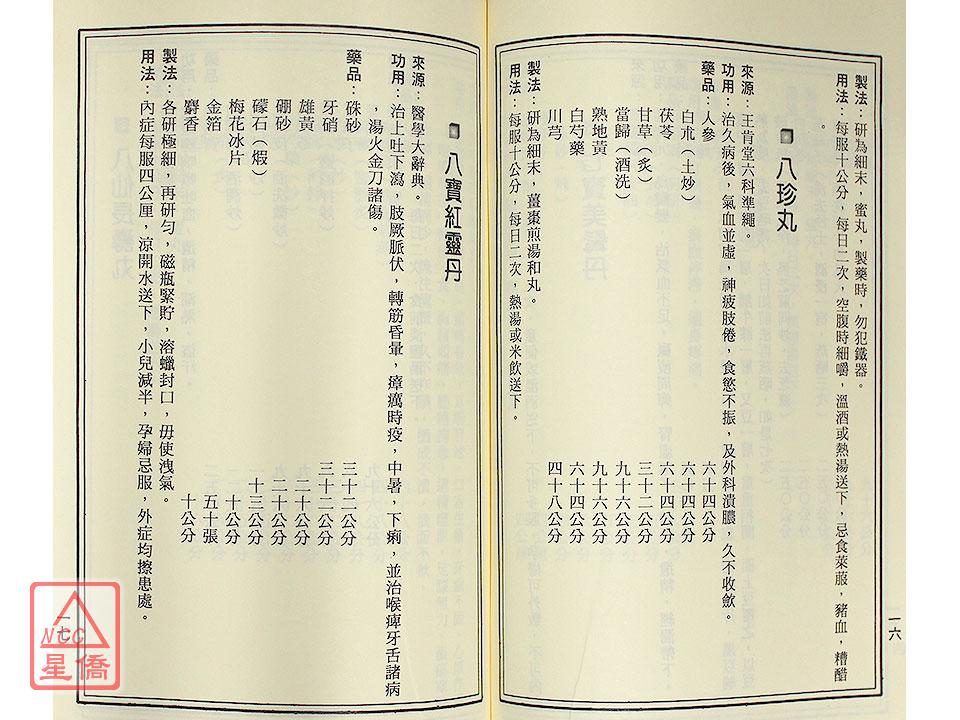 製法：研為細末，蜜丸，製藥時，勿犯鐵器。
用法：每服十公分，每日二次，空腹時細嚼，溫酒或熱湯送下，忌食萊菔，豬血，糟醋
。
八珍丸
來源：王肯堂六科準繩。
功用：治久病後，氣血並虛，神疲肢倦，食慾不振，及外科潰膿，久不收斂。
藥品：人參 六十四公分
白朮（土炒） 六十四公分
茯苓 六十四公分
甘草（炙） 三十二公分
當歸（酒洗） 九十六公分
熟地黃 九十六公分
白芍藥 六十四公分
川芎 四十八公分
製法：研為細末，薑棗煎湯和丸。
用法：每服十公分，每日二次，熱湯或米飲送下。
一六
八寶紅靈丹
來源：醫學大辭典。
功用：治上吐下瀉，肢厥脈伏，轉筋昏暈，瘴癘時疫，中暑，下痢，並治喉痺牙舌諸病
，湯火金刀諸傷。
藥品：硃砂 三十二公分
牙硝 三十二公分
雄黃 二十公分
硼砂 二十公分
礞石（煅） 十三公分
梅花冰片 十公分
金箔 五十張
麝香 十公分
製法：各研極細，再研勻，磁瓶緊貯，溶蠟封口，毋使洩氣。
用法：內症每服四公厘，涼開水送下，小兒減半，孕婦忌服，外症均擦患處。
一七
NCC
星僑